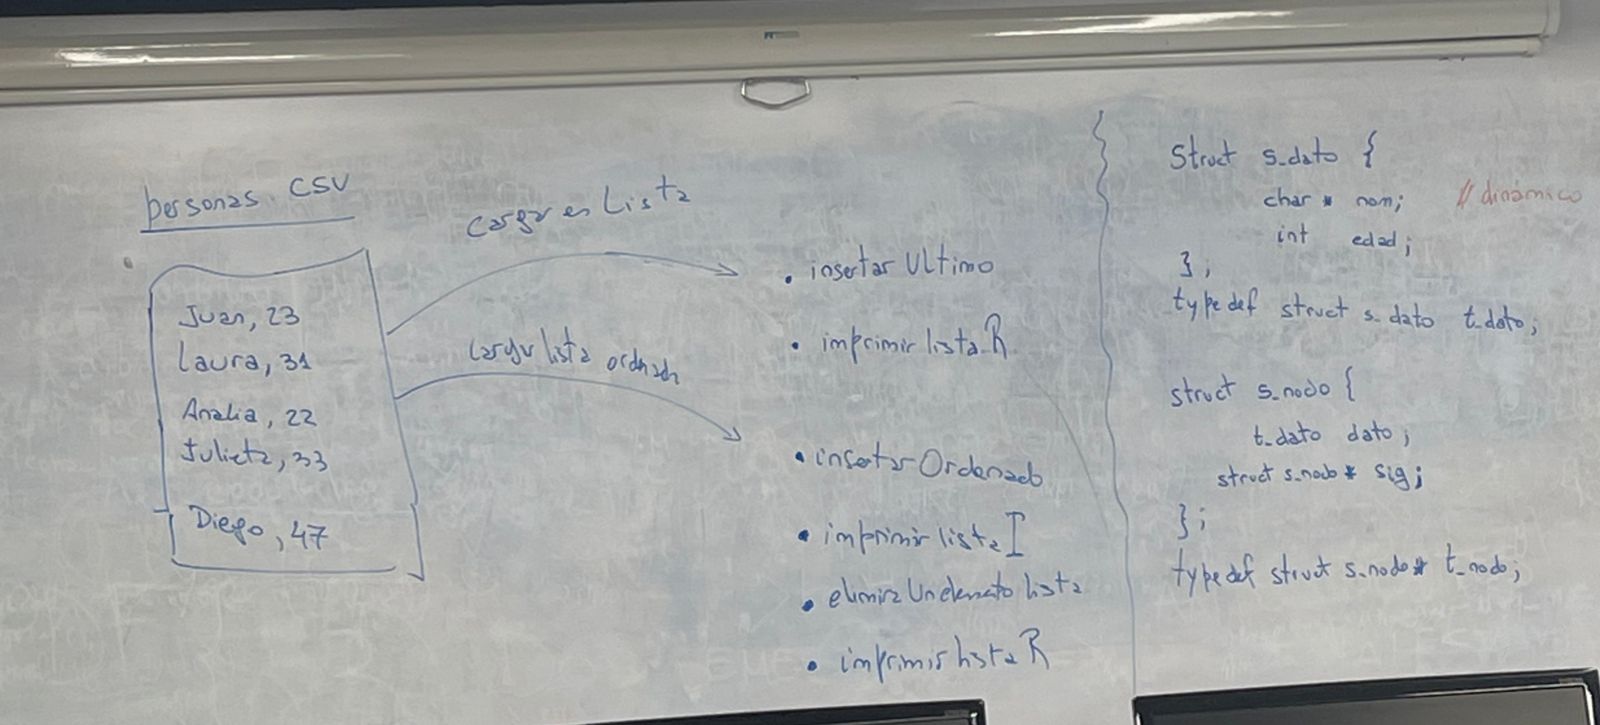 personas.CSV
Juan, 23
Laura, 31
Analia, 22
Julieta, 33
Diego, 47
cargar en Lista
cargar lista ordenada
• insertar Ultimo
• imprimir lista R
• insertar Ordenado
• imprimir lista I
• elimina Un elemento lista
• imprimir lista R
Struct s_dato {
char * nom; // dinámico
int edad;
};
typedef struct s_dato t_dato;
struct s_nodo {
t_dato dato;
struct s_nodo * sig;
};
typedef struct s_nodo* t_nodo;